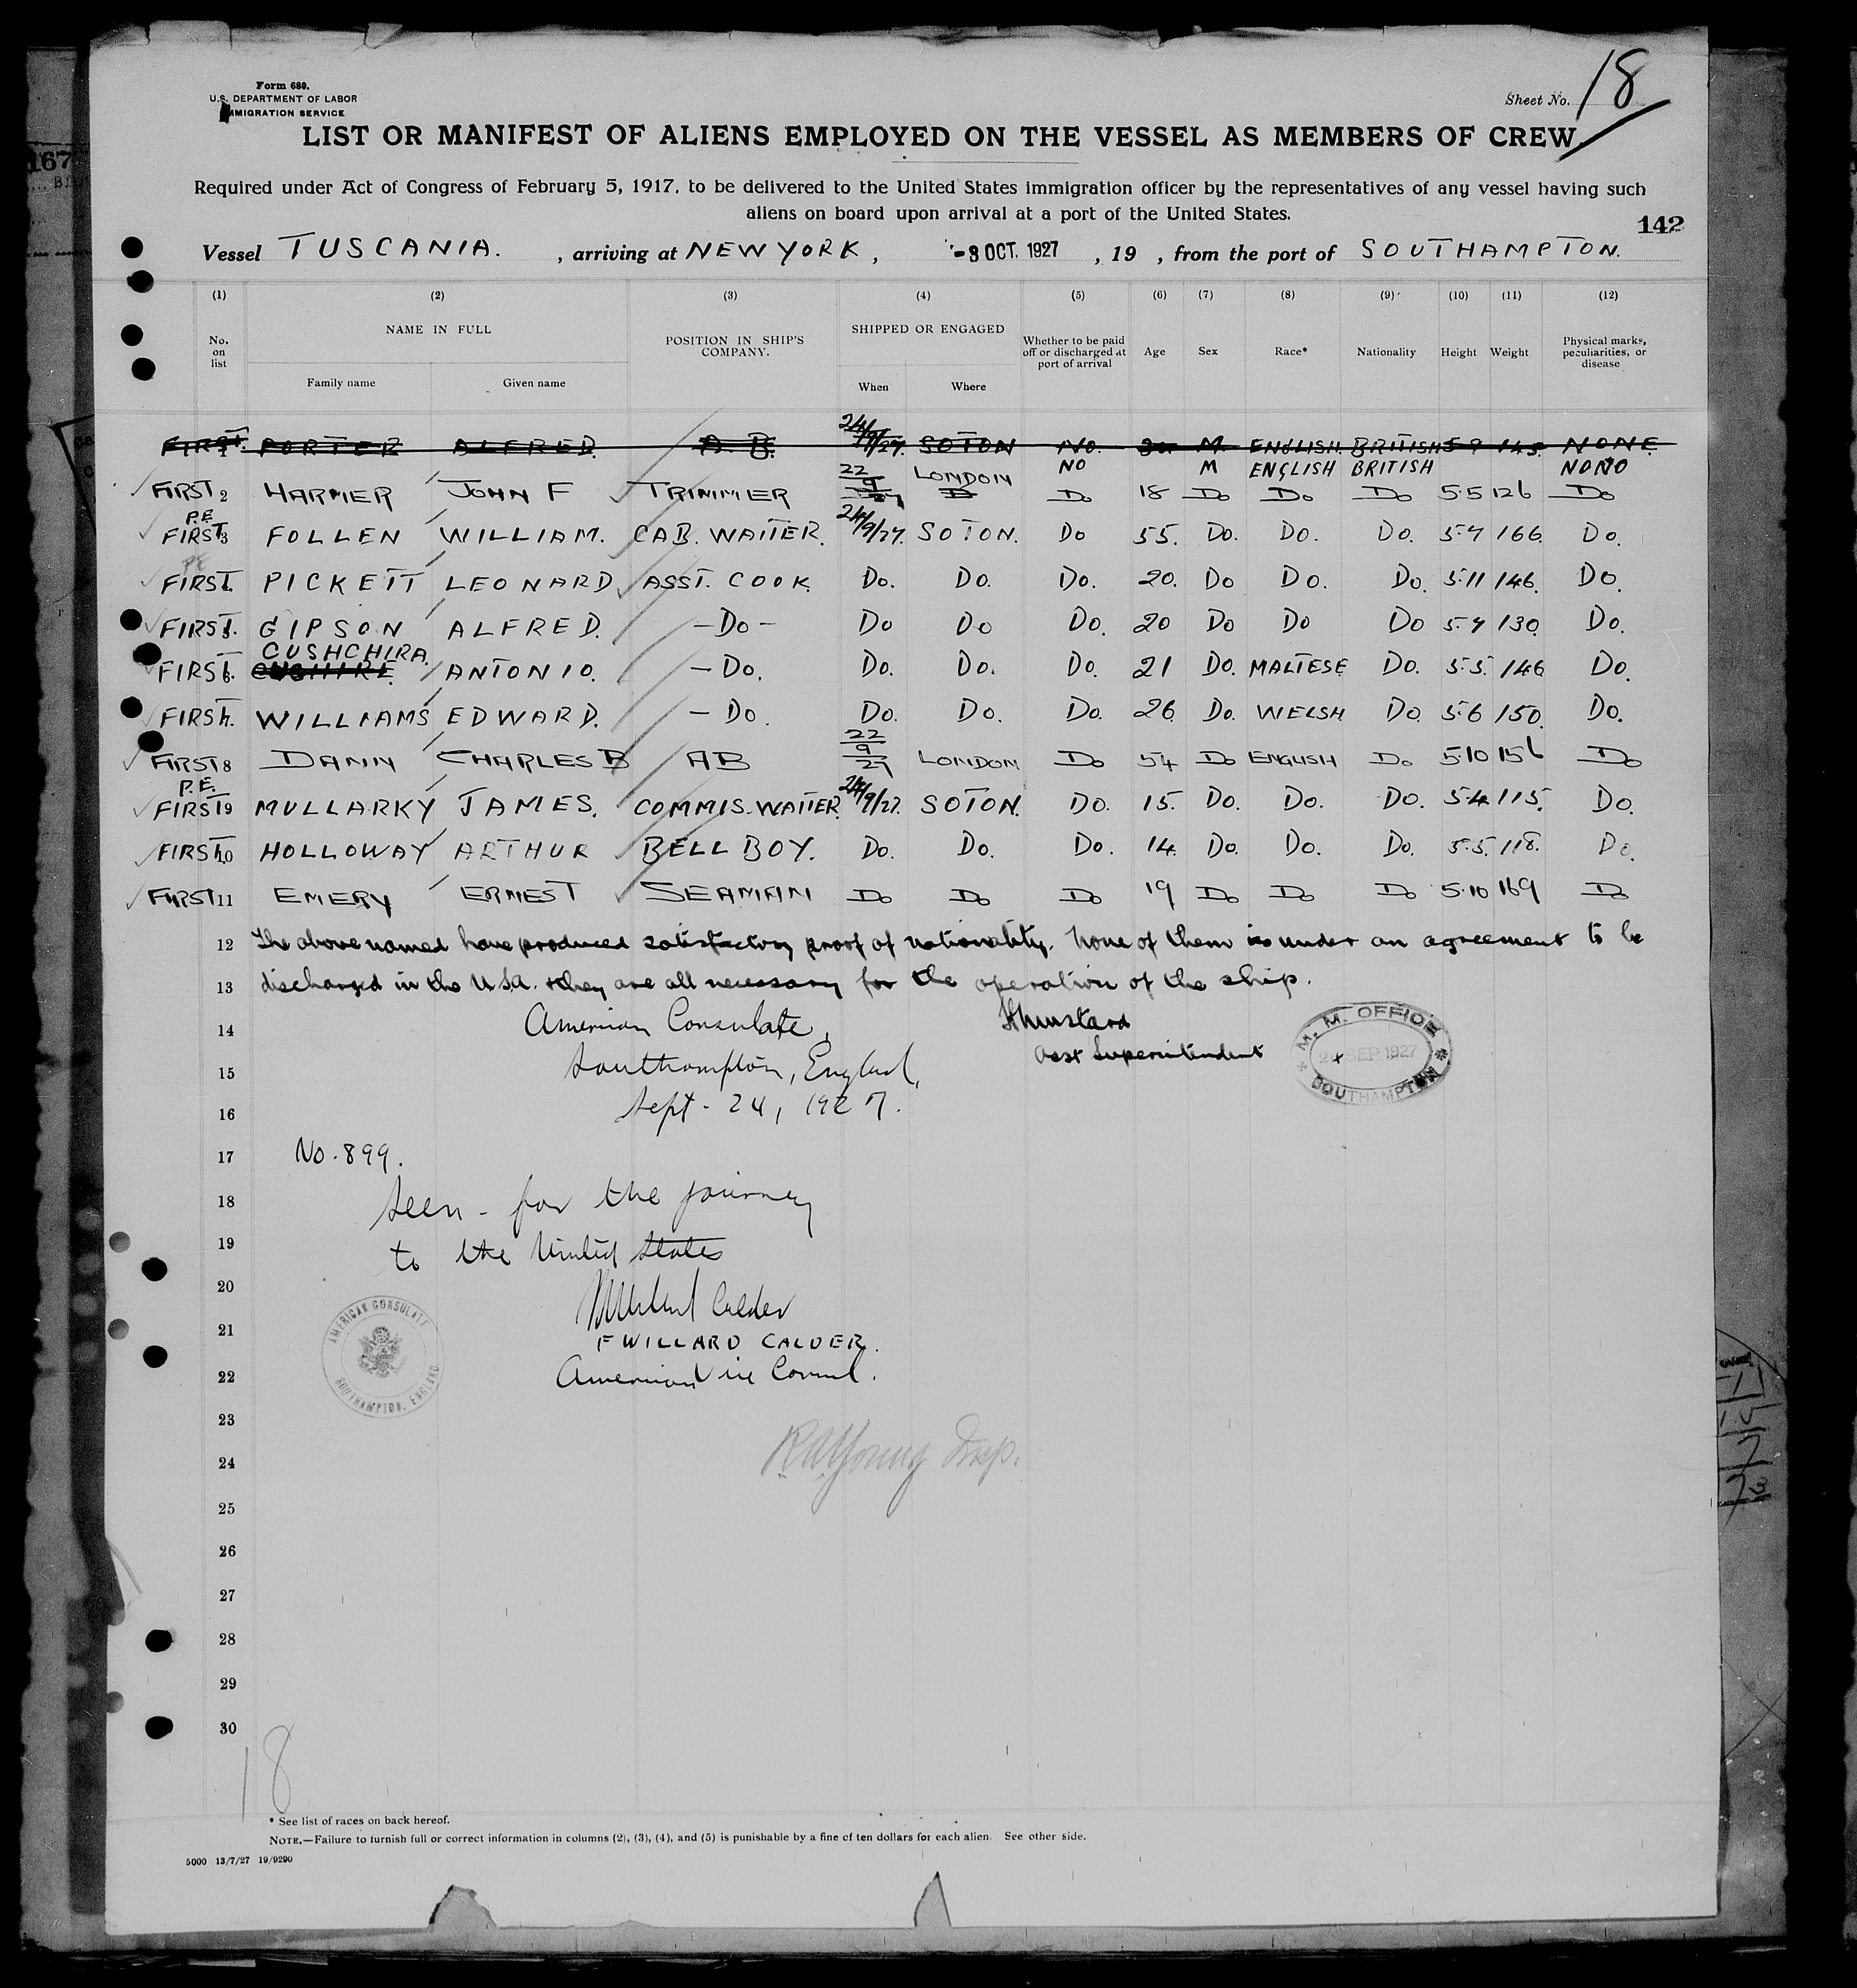 Form 680.
U.S. DEPARTMENT OF LABOR
IMMIGRATION SERVICE
Sheet No. 18
LIST OR MANIFEST OF ALIENS EMPLOYED ON THE VESSEL AS MEMBERS OF CREW
Required under Act of Congress of February 5, 1917, to be delivered to the United States immigration officer by the representatives of any vessel having such
aliens on board upon arrival at a port of the United States.
142
Vessel TUSCANIA. , arriving at NEW YORK , -3 OCT. 1927 , 19 , from the port of SOUTHAMPTON.
(1) (2) (3) (4) (5) (6) (7) (8) (9) (10) (11) (12)
No. on list NAME IN FULL Family name Given name POSITION IN SHIP'S COMPANY. SHIPPED OR ENGAGED When Where Whether to be paid off or discharged at port of arrival Age Sex Race* Nationality Height Weight Physical marks, peculiarities, or disease
FIRST 1 PORTER ALFRED. A.B. 24/9/27. SOTON NO. M. ENGLISH. BRITISH 5-9 145 NONE.
NO M ENGLISH BRITISH NONO
FIRST 2 HARMER JOHN F TRIMMER 22/9/27 LONDON Do 18 Do Do Do 5.5 126 Do
P.E.
FIRST 3 FOLLEN WILLIAM. CAB. WAITER. 24/9/27. SOTON. Do 55. Do. Do. Do. 5.7 166. Do.
FIRST 4. PICKETT LEONARD ASST. COOK. Do. Do. Do. 20. Do Do. Do. 5.11 146. Do.
FIRST 5. GIPSON ALFRED. -Do- Do Do Do. 20 Do Do Do 5.7 130. Do.
CUSHCHIRA.
FIRST 6. CUSHIRE ANTONIO. -Do. Do. Do. Do. 21 Do. MALTESE Do. 5.5. 146 Do.
FIRST 7. WILLIAMS EDWARD. -Do. Do. Do. Do. 26. Do. WELSH Do. 5.6 150. Do.
FIRST 8 DANN CHARLES B AB 22/9/27 LONDON Do 54 Do ENGLISH Do 5.10 156 Do
P.E.
FIRST 9 MULLARKY JAMES. COMMIS. WAITER. 24/9/27. SOTON. Do. 15. Do. Do. Do. 5.4 115. Do.
FIRST 10 HOLLOWAY ARTHUR BELL BOY. Do. Do. Do. 14. Do. Do. Do. 5.5. 118. Do.
FIRST 11 EMERY ERNEST SEAMAN Do Do Do 19 Do Do Do 5.10 169 Do
12 The above named have produced satisfactory proof of nationality. None of them is under an agreement to be
13 discharged in the U.S.A. They are all necessary for the operation of the ship.
14 American Consulate,
Asst Superintendent
M. M. OFFICE
SEP 1927
SOUTHAMPTON
15 Southampton, England,
16 Sept. 24, 1927.
17 No. 899.
18 Seen - for the journey
19 to the United States
20 Willard Calder
21 F WILLARD CALDER.
22 American Vice Consul.
AMERICAN CONSULATE
SOUTHAMPTON, ENGLAND
23
24 R A Young Insp.
25
26
27
28
29
30
18
* See list of races on back hereof.
NOTE.—Failure to furnish full or correct information in columns (2), (3), (4), and (5) is punishable by a fine of ten dollars for each alien. See other side.
5000 13/7/27 19/9290